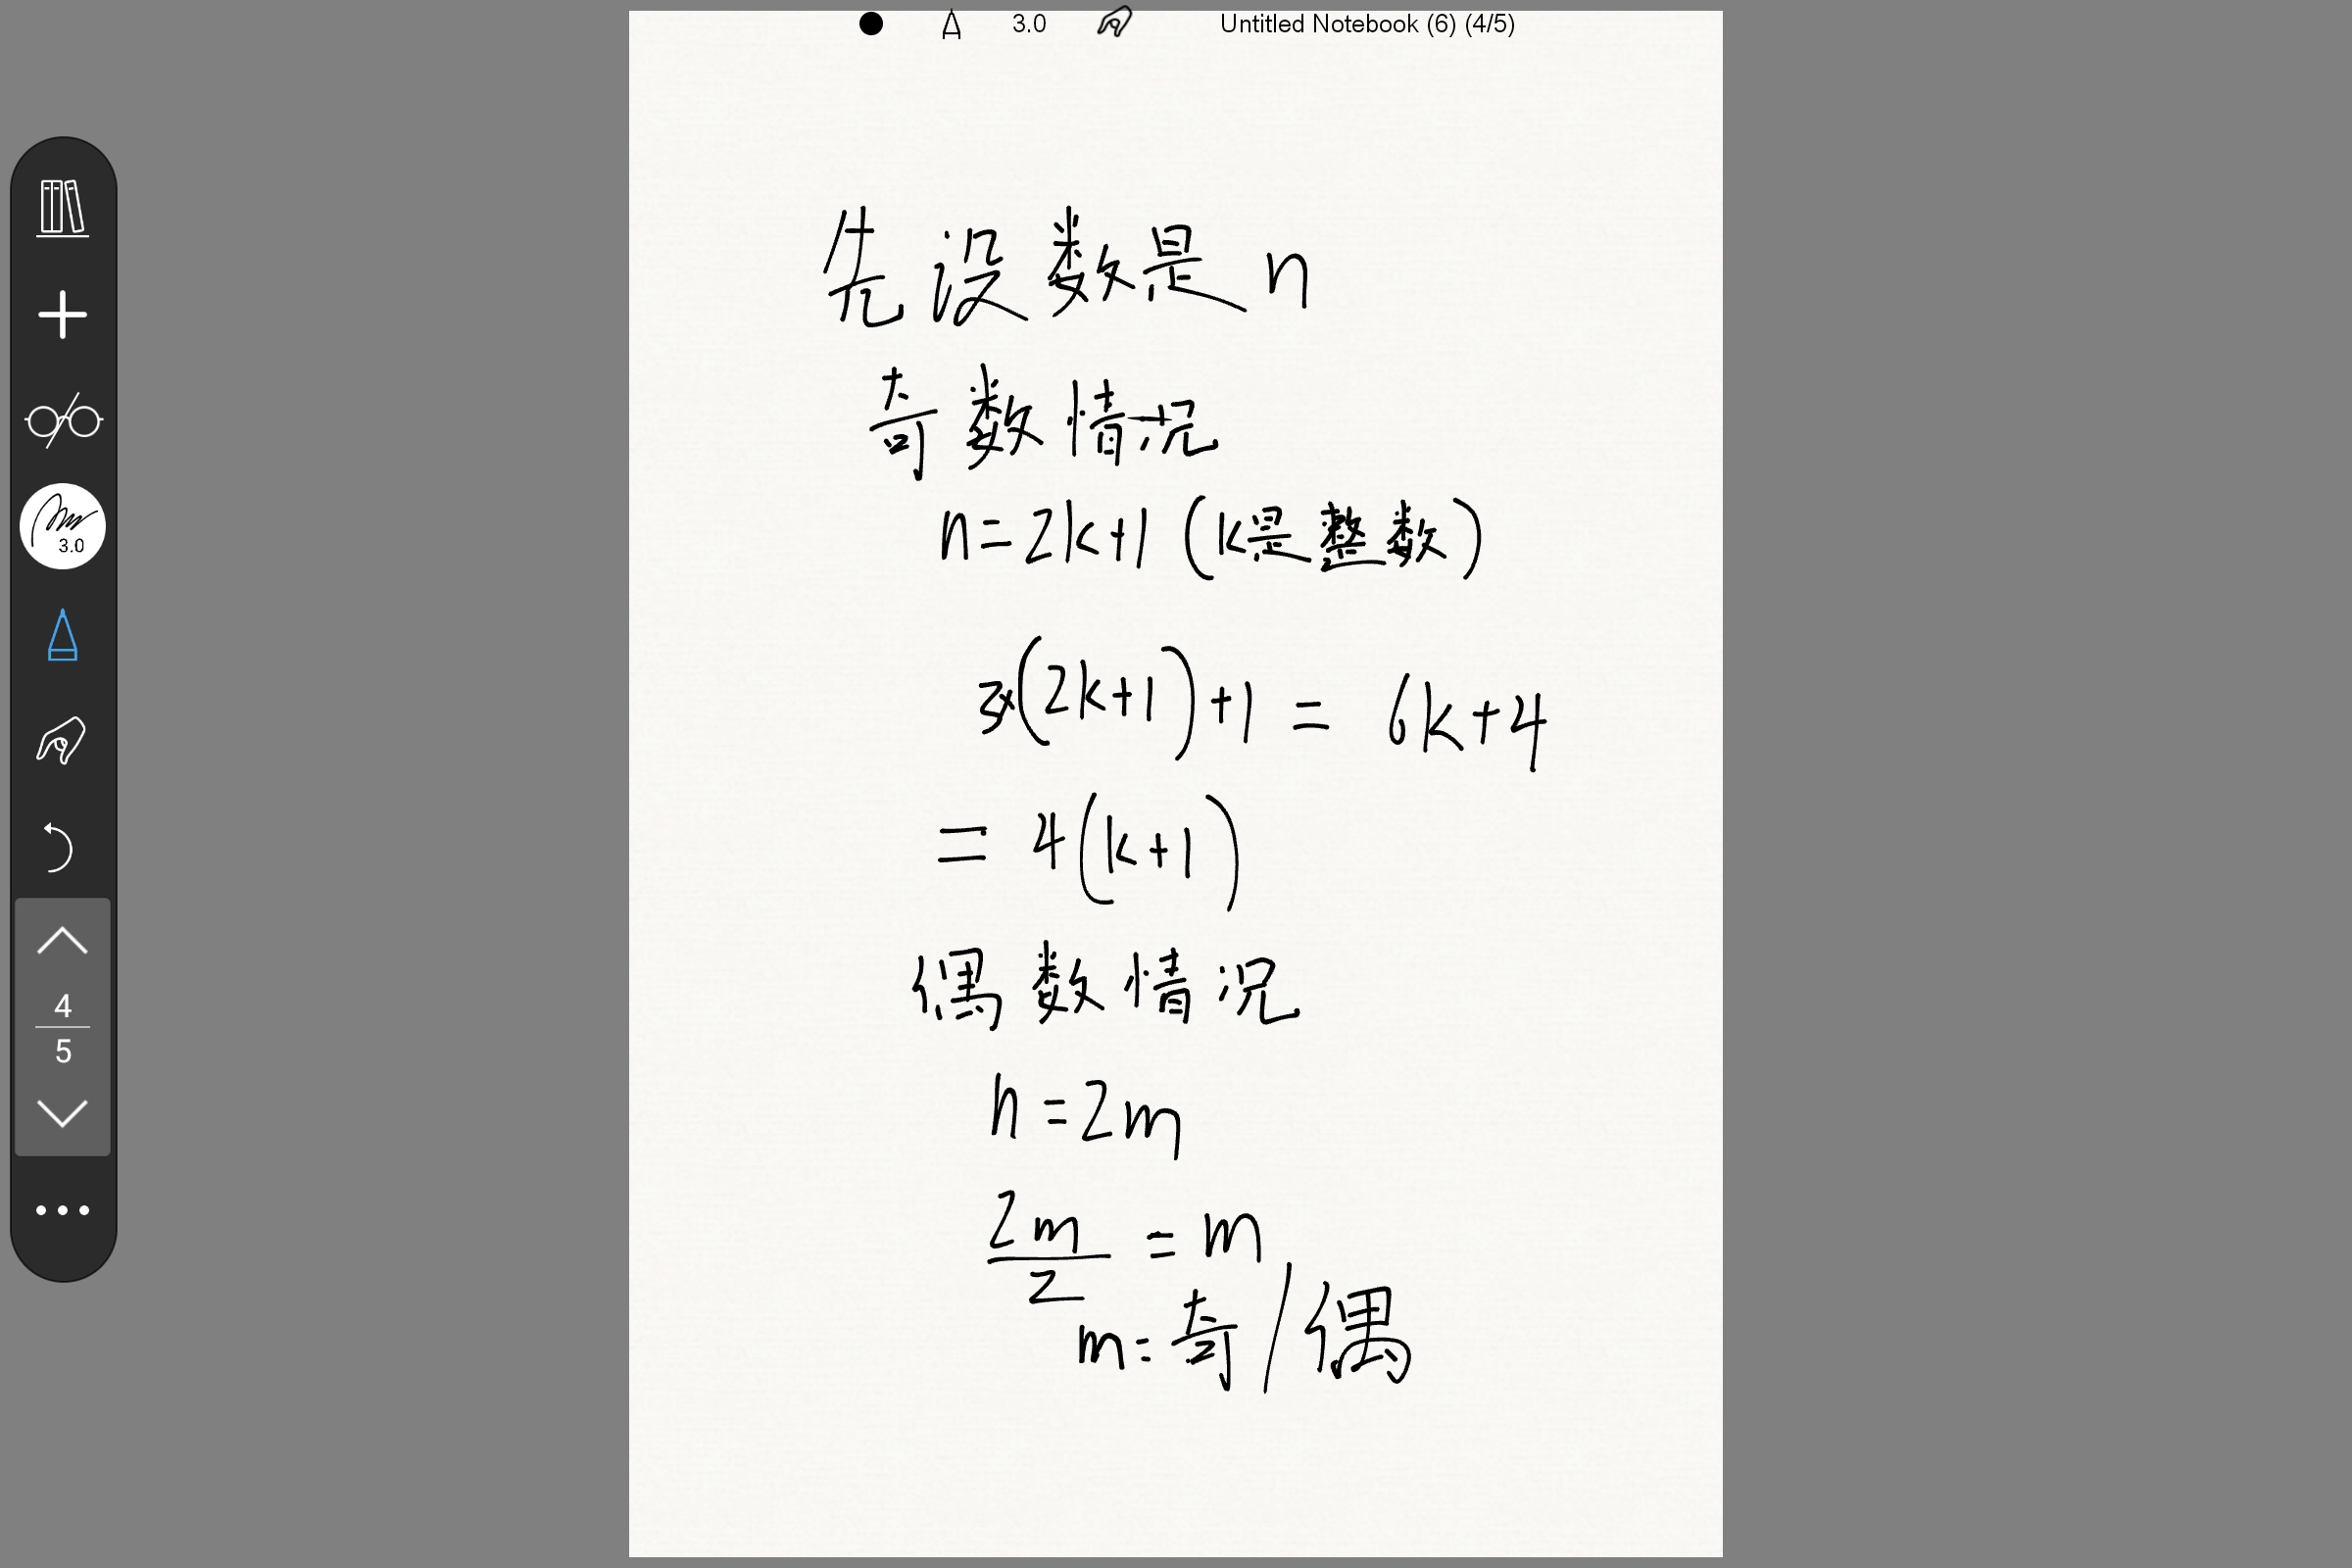 3.0 Untitled Notebook (6) (4/5)
先设数是n
奇数情况
n=2k+1 (k是整数)
3×(2k+1)+1 = 6k+4
= 4(k+1)
偶数情况
n=2m
2m/2 = m
m=奇/偶
3.0
4
5